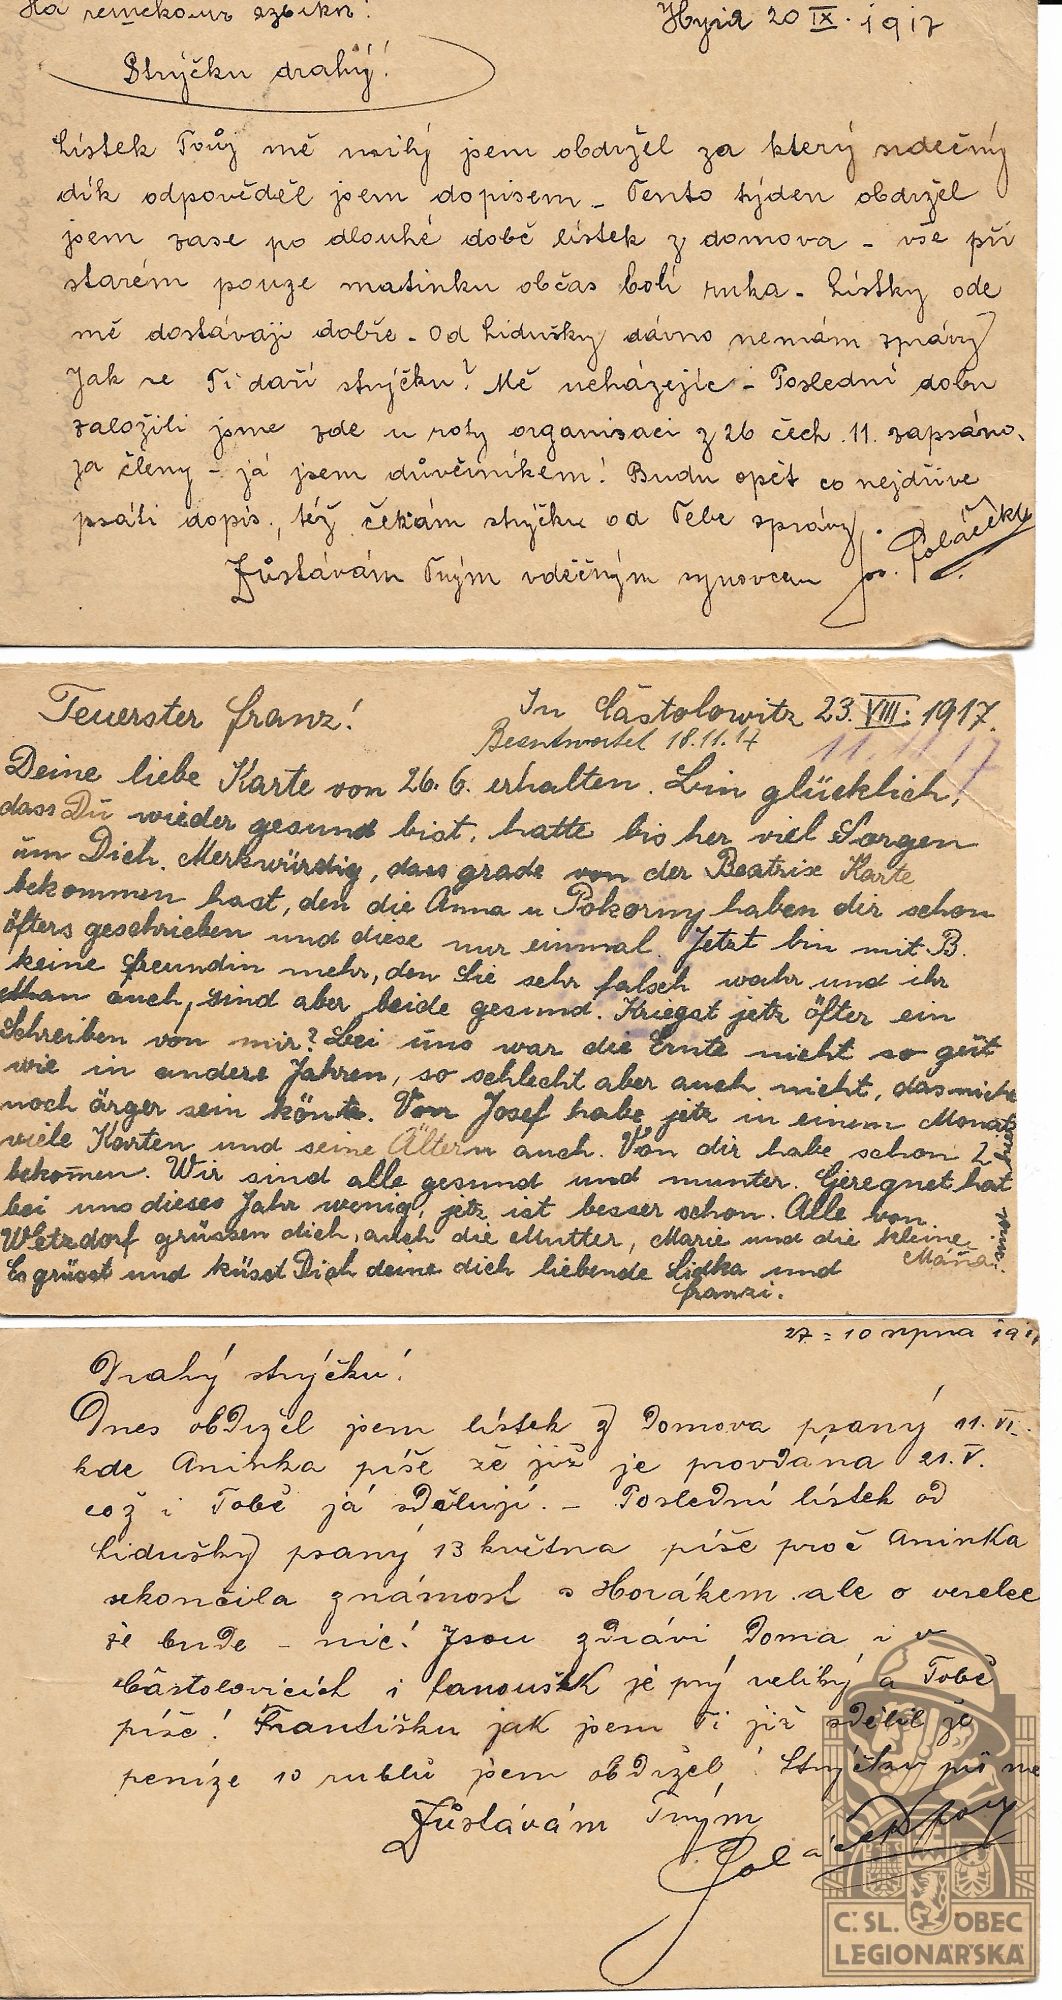 На чешскомъ языкѣ!
20 IX. 1917
Strýčku drahý!
Lístek Tvůj mě milý jsem obdržel za který srdečný
dík odpověděl jsem dopisem – Tento týden obdržel
jsem zase po dlouhé době lístek z domova – vše při
starém pouze matinku občas bolí ruka – Lístky ode
mě dostávají dobře – Od Lidušky dávno nemám zprávy
Jak se Ti daří strýčku? Mě ucházejíc – Poslední dobu
založili jsme zde u roty organisaci z 26 čech. 11. zapsáno
za členy – já jsem důvěrníkem! Budu opět co nejdříve
psáti dopis, též čekám strýčku od Tebe zprávy.
Zůstávám Tvým vděčným synovcem Jos. Poláček
Teuerster Franz!
In Častolowitz 23. VIII. 1917.
Beantwortet 18.11.17
11.11.17
Deine liebe Karte von 26. 6. erhalten. Bin glücklich,
dass Du wieder gesund bist, hatte bis her viel Sorgen
um Dich. Merkwürdig, dass grade von der Beatrix Karte
bekommen hast, den die Anna u Pokorny haben dir schon
öfters geschrieben und diese nur einmal. Jetzt bin mit B.
keine freundin mehr, den Sie sehr falsch wahr und ihr
Man auch, sind aber beide gesund. Kriegst jetz öfter ein
Schreiben von mir? Bei uns war die Ernte nicht so gut
wie in andere Jahren, so schlecht aber auch nicht, das nicht
noch ärger sein könte. Von Josef habe jetz in einem Monat
viele Karten und seine Ältern auch. Von dir habe schon 2
bekom̄en. Wir sind alle gesund und munter. Geregnet hat
bei uns dieses Jahr wenig, jetz ist besser schon. Alle von
Wetzdorf grüssen dich, auch die Mutter, Marie und die kleine
Máňa.
Es grüsst und küsst Dich deine dich liebende Lidka und
franzi.
27 = 10 srpna 191
Drahý strýčku!
Dnes obdržel jsem lístek z domova psaný 11. VI.
kde Aninka píše že již je provdána 21. V.
což i Tobě já sděluji. – Poslední lístek od
Lidušky psaný 13 května píše proč Aninka
skončila známost s Horákem ale o veselce
že bude – nic! Jsou zdrávi doma i v
Častolovicích i Fanoušek je prý veliký a Tobě
píše! Františku jak jsem Ti již sdělil že
peníze 10 rublů jsem obdržel! Strýčku piš mě
Zůstávám Tvým
Poláček
Č. SL. OBEC
LEGIONÁŘSKÁ